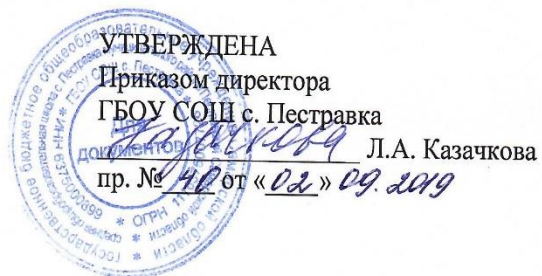 УТВЕРЖДЕНА
Приказом директора
ГБОУ СОШ с. Пестравка
Казачкова Л.А. Казачкова
пр. № 40 от «02» 09. 2019
Для
документов